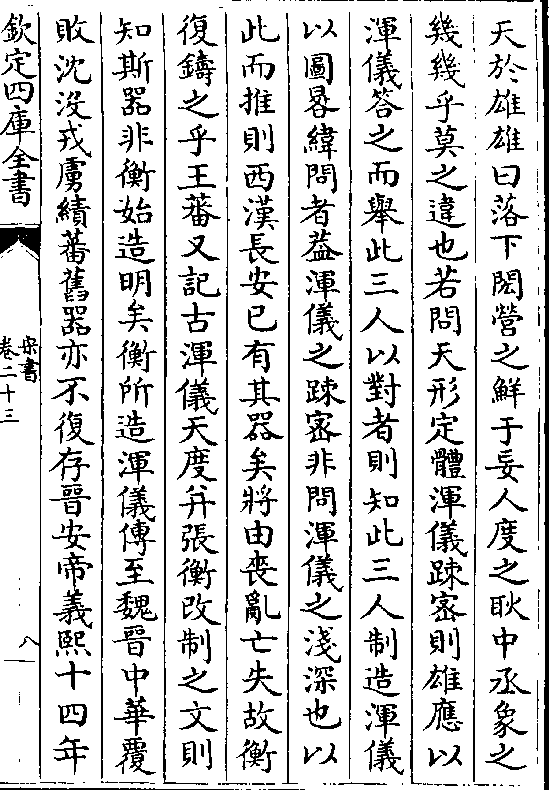 天於雄雄曰落下閎營之鮮于妄人度之耿中丞象之
幾幾乎莫之違也若問天形定體渾儀踈宻則雄應以
渾儀答之而舉此三人以對者則知此三人制造渾儀
以圖晷緯問者葢渾儀之踈宻非問渾儀之淺深也以
此而推則西漢長安已有其器矣將由喪亂亡失故衡
復鑄之乎王蕃又記古渾儀天度并張衡改制之文則
知斯器非衡始造明矣衡所造渾儀傳至魏晉中華覆
敗沈沒戎虜績蕃舊器亦不復存晉安帝義熙十四年
欽定四庫全書
宋書
卷二十三
八